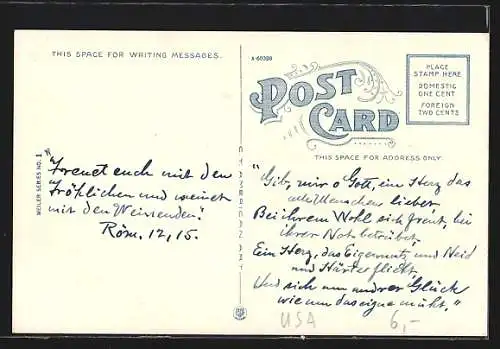 THIS SPACE FOR WRITING MESSAGES.
A-60320
POST CARD
PLACE
STAMP HERE
DOMESTIC
ONE CENT
FOREIGN
TWO CENTS
THIS SPACE FOR ADDRESS ONLY.
WEILER SERIES NO. 1
"Freuet euch mit den
Fröhlichen und weinet
mit den Weinenden."
Röm. 12, 15.
"Gib, mir o Gott, ein Herz das
alle Menschen liebet
Bei ihrem Wohl sich freut, bei
ihrer Not betrübet.
Ein Herz, das Eigennutz und Neid
und Härte flieht,
Und sich um andrer Glück
wie um das eigne müht."
USA
6,-